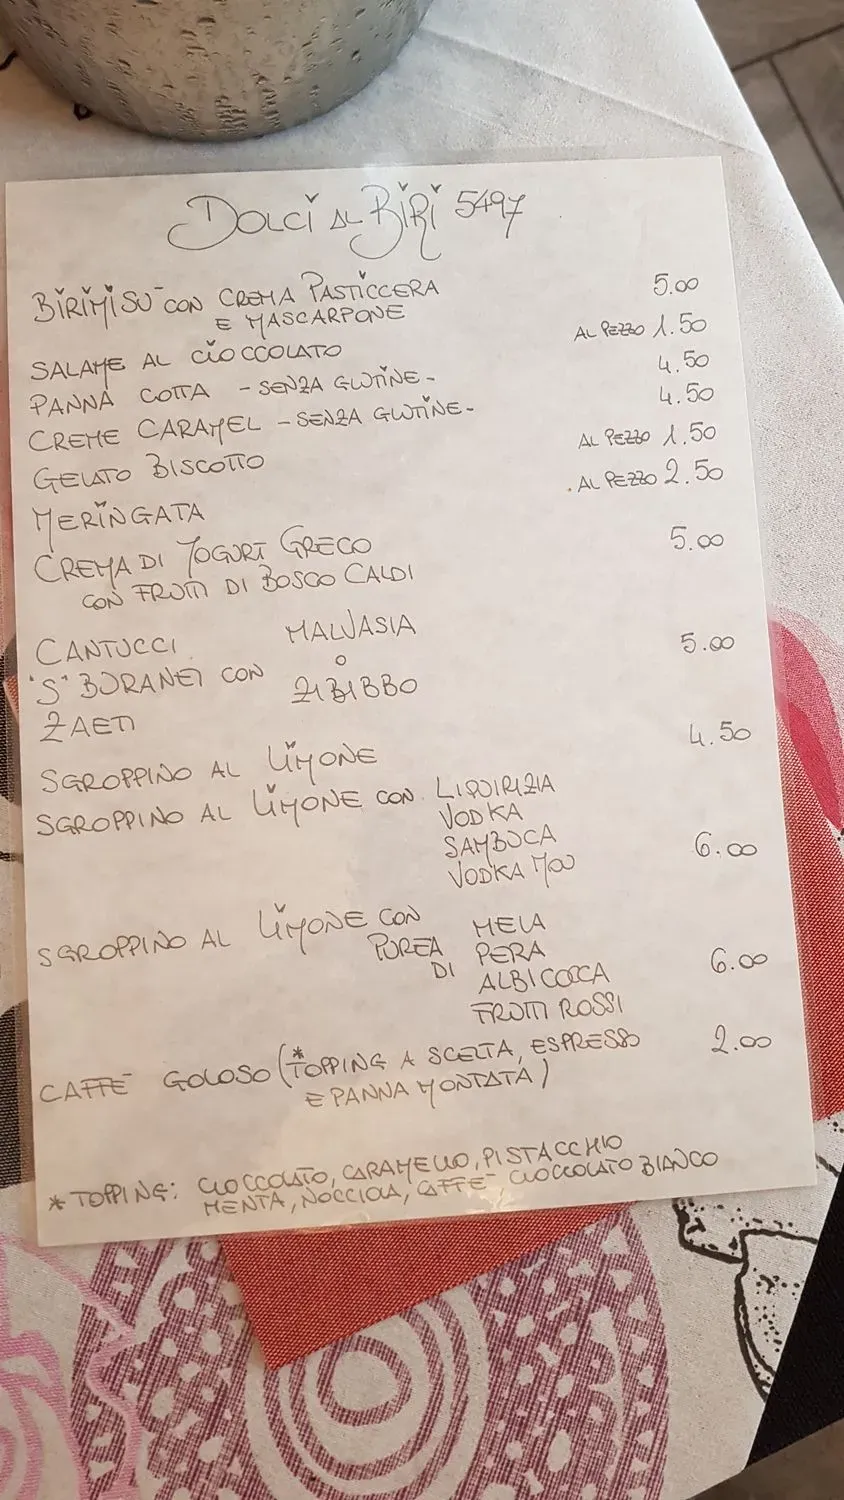 DOLCI AL BIRI 5497
BIRIMISÙ CON CREMA PASTICCERA 5.00
E MASCARPONE
SALAME AL CIOCCOLATO AL PEZZO 1.50
PANNA COTTA - SENZA GLUTINE - 4.50
CREME CARAMEL - SENZA GLUTINE - 4.50
GELATO BISCOTTO AL PEZZO 1.50
MERINGATA AL PEZZO 2.50
CREMA DI YOGURT GRECO 5.00
CON FRUTTI DI BOSCO CALDI
CANTUCCI MALVASIA
"S" BURANEI CON O 5.00
ZAETI ZIBIBBO
SGROPPINO AL LIMONE 4.50
SGROPPINO AL LIMONE CON LIQUIRIZIA
VODKA
SAMBUCA 6.00
VODKA MOU
SGROPPINO AL LIMONE CON MELA
PUREA PERA
DI ALBICOCCA 6.00
FRUTTI ROSSI
CAFFE' GOLOSO (*TOPPING A SCELTA, ESPRESSO 2.00
E PANNA MONTATA)
* TOPPING: CIOCCOLATO, CARAMELLO, PISTACCHIO
MENTA, NOCCIOLA, CAFFE', CIOCCOLATO BIANCO